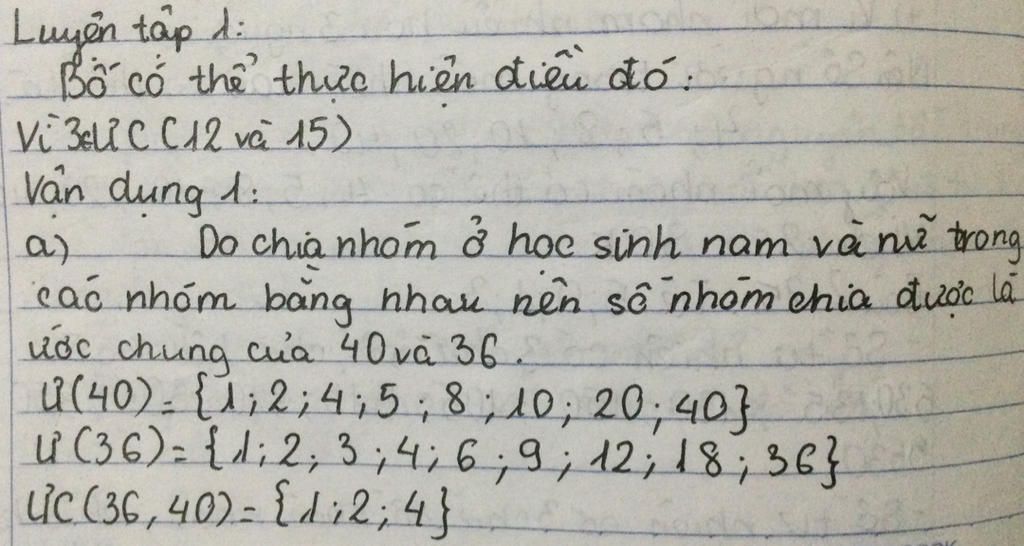 Luyện tập 1:
Bố có thể thực hiện điều đó:
Vì 3∈ƯC (12 và 15)
Vận dụng 1:
a) Do chia nhóm ở học sinh nam và nữ trong
các nhóm bằng nhau nên số nhóm chia được là
ước chung của 40 và 36.
Ư(40) = {1; 2; 4; 5; 8; 10; 20; 40}
Ư(36) = {1; 2; 3; 4; 6; 9; 12; 18; 36}
ƯC(36, 40) = {1; 2; 4}